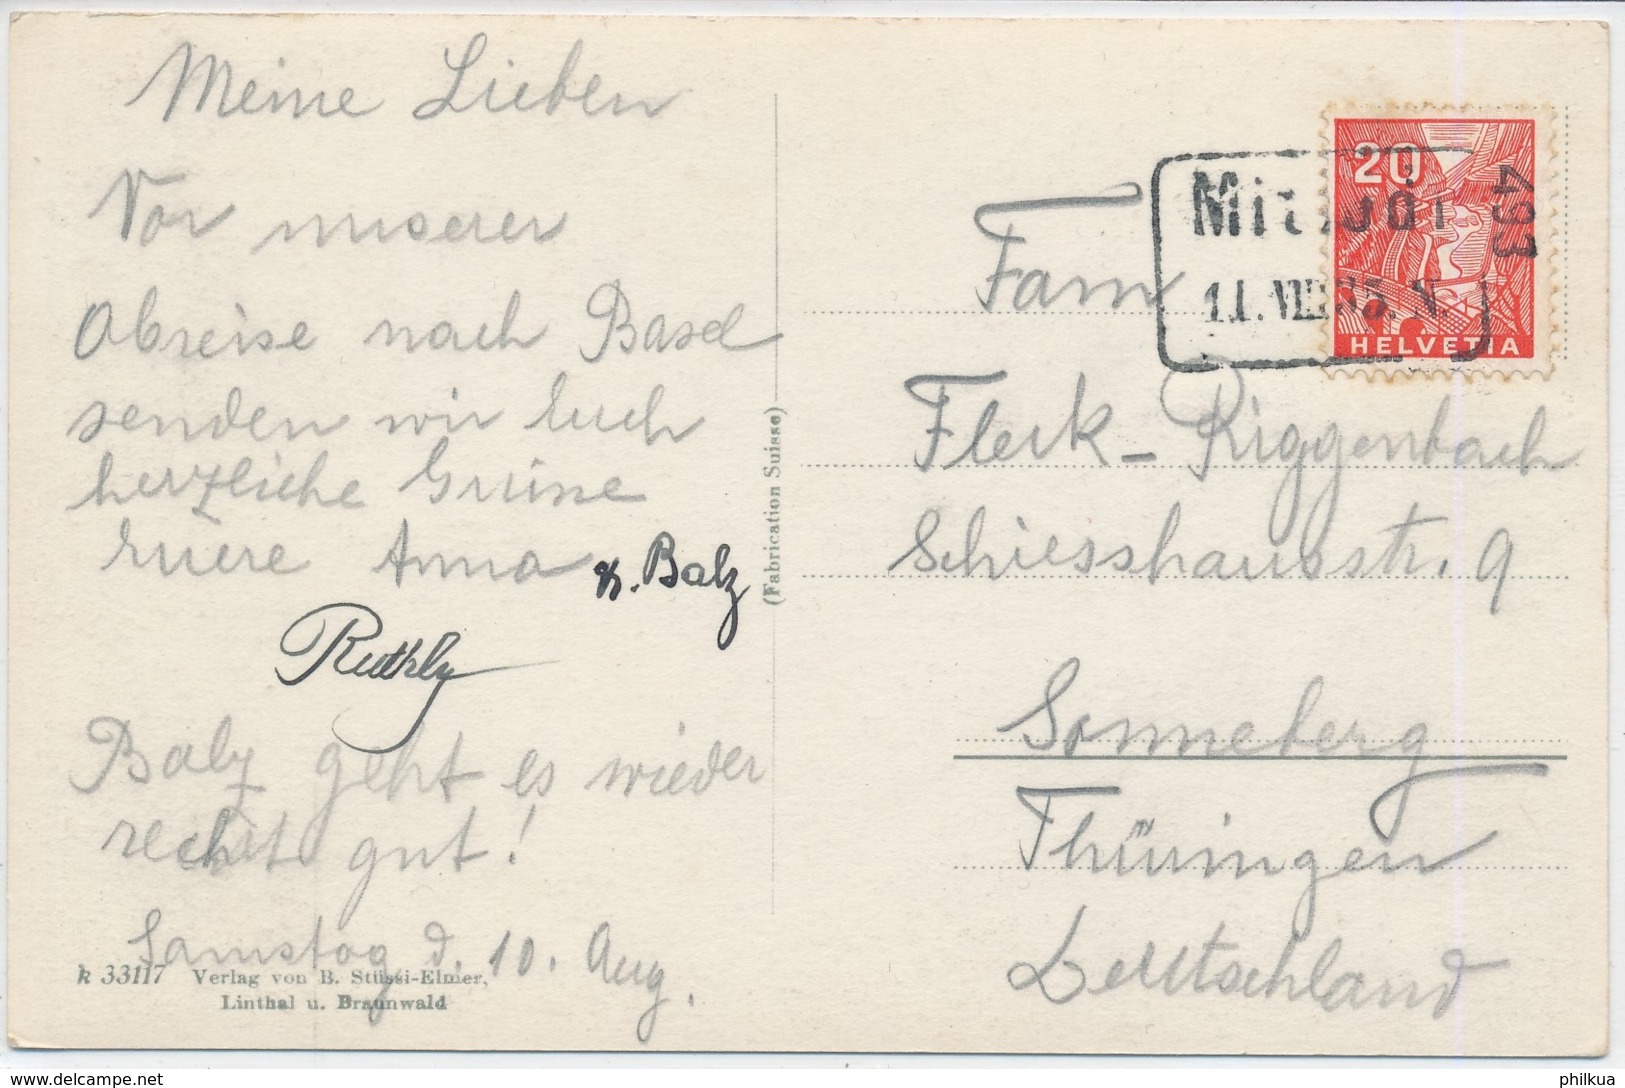 Meine Lieben
Vor unserer
Abreise nach Basel
senden wir Euch
herzliche Grüsse
Euere Anna u. Balz
Ruthly
Balz geht es wieder
recht gut!
Samstag d. 10. Aug.
k 33117 Verlag von B. Stüssi-Elmer,
Linthal u. Braunwald
(Fabrication Suisse)
20
HELVETIA
493
11. VIII. 35. N.
Fam
Fleck-Riggenbach
Schiesshausstr. 9
Sonneberg
Thüringen
Deutschland
www.delcampe.net
philkua